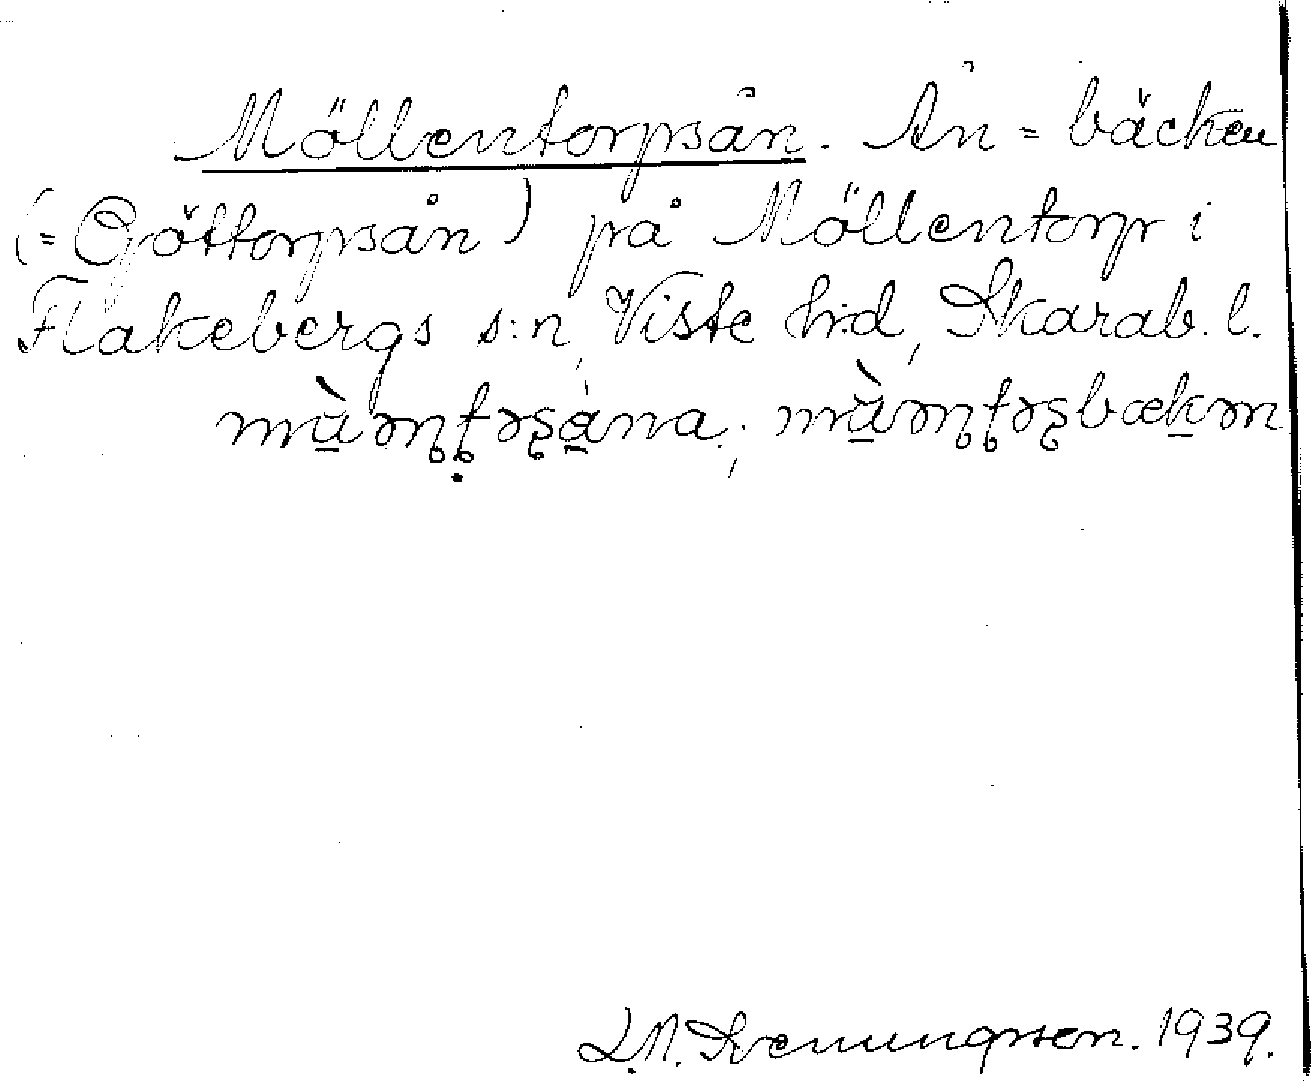 Möllentorpsån. Ån = bäcken
(= Gjöttorpsån) på Möllentorp i
Flakebergs s:n, Viste h:d, Skarab. l.
1939.